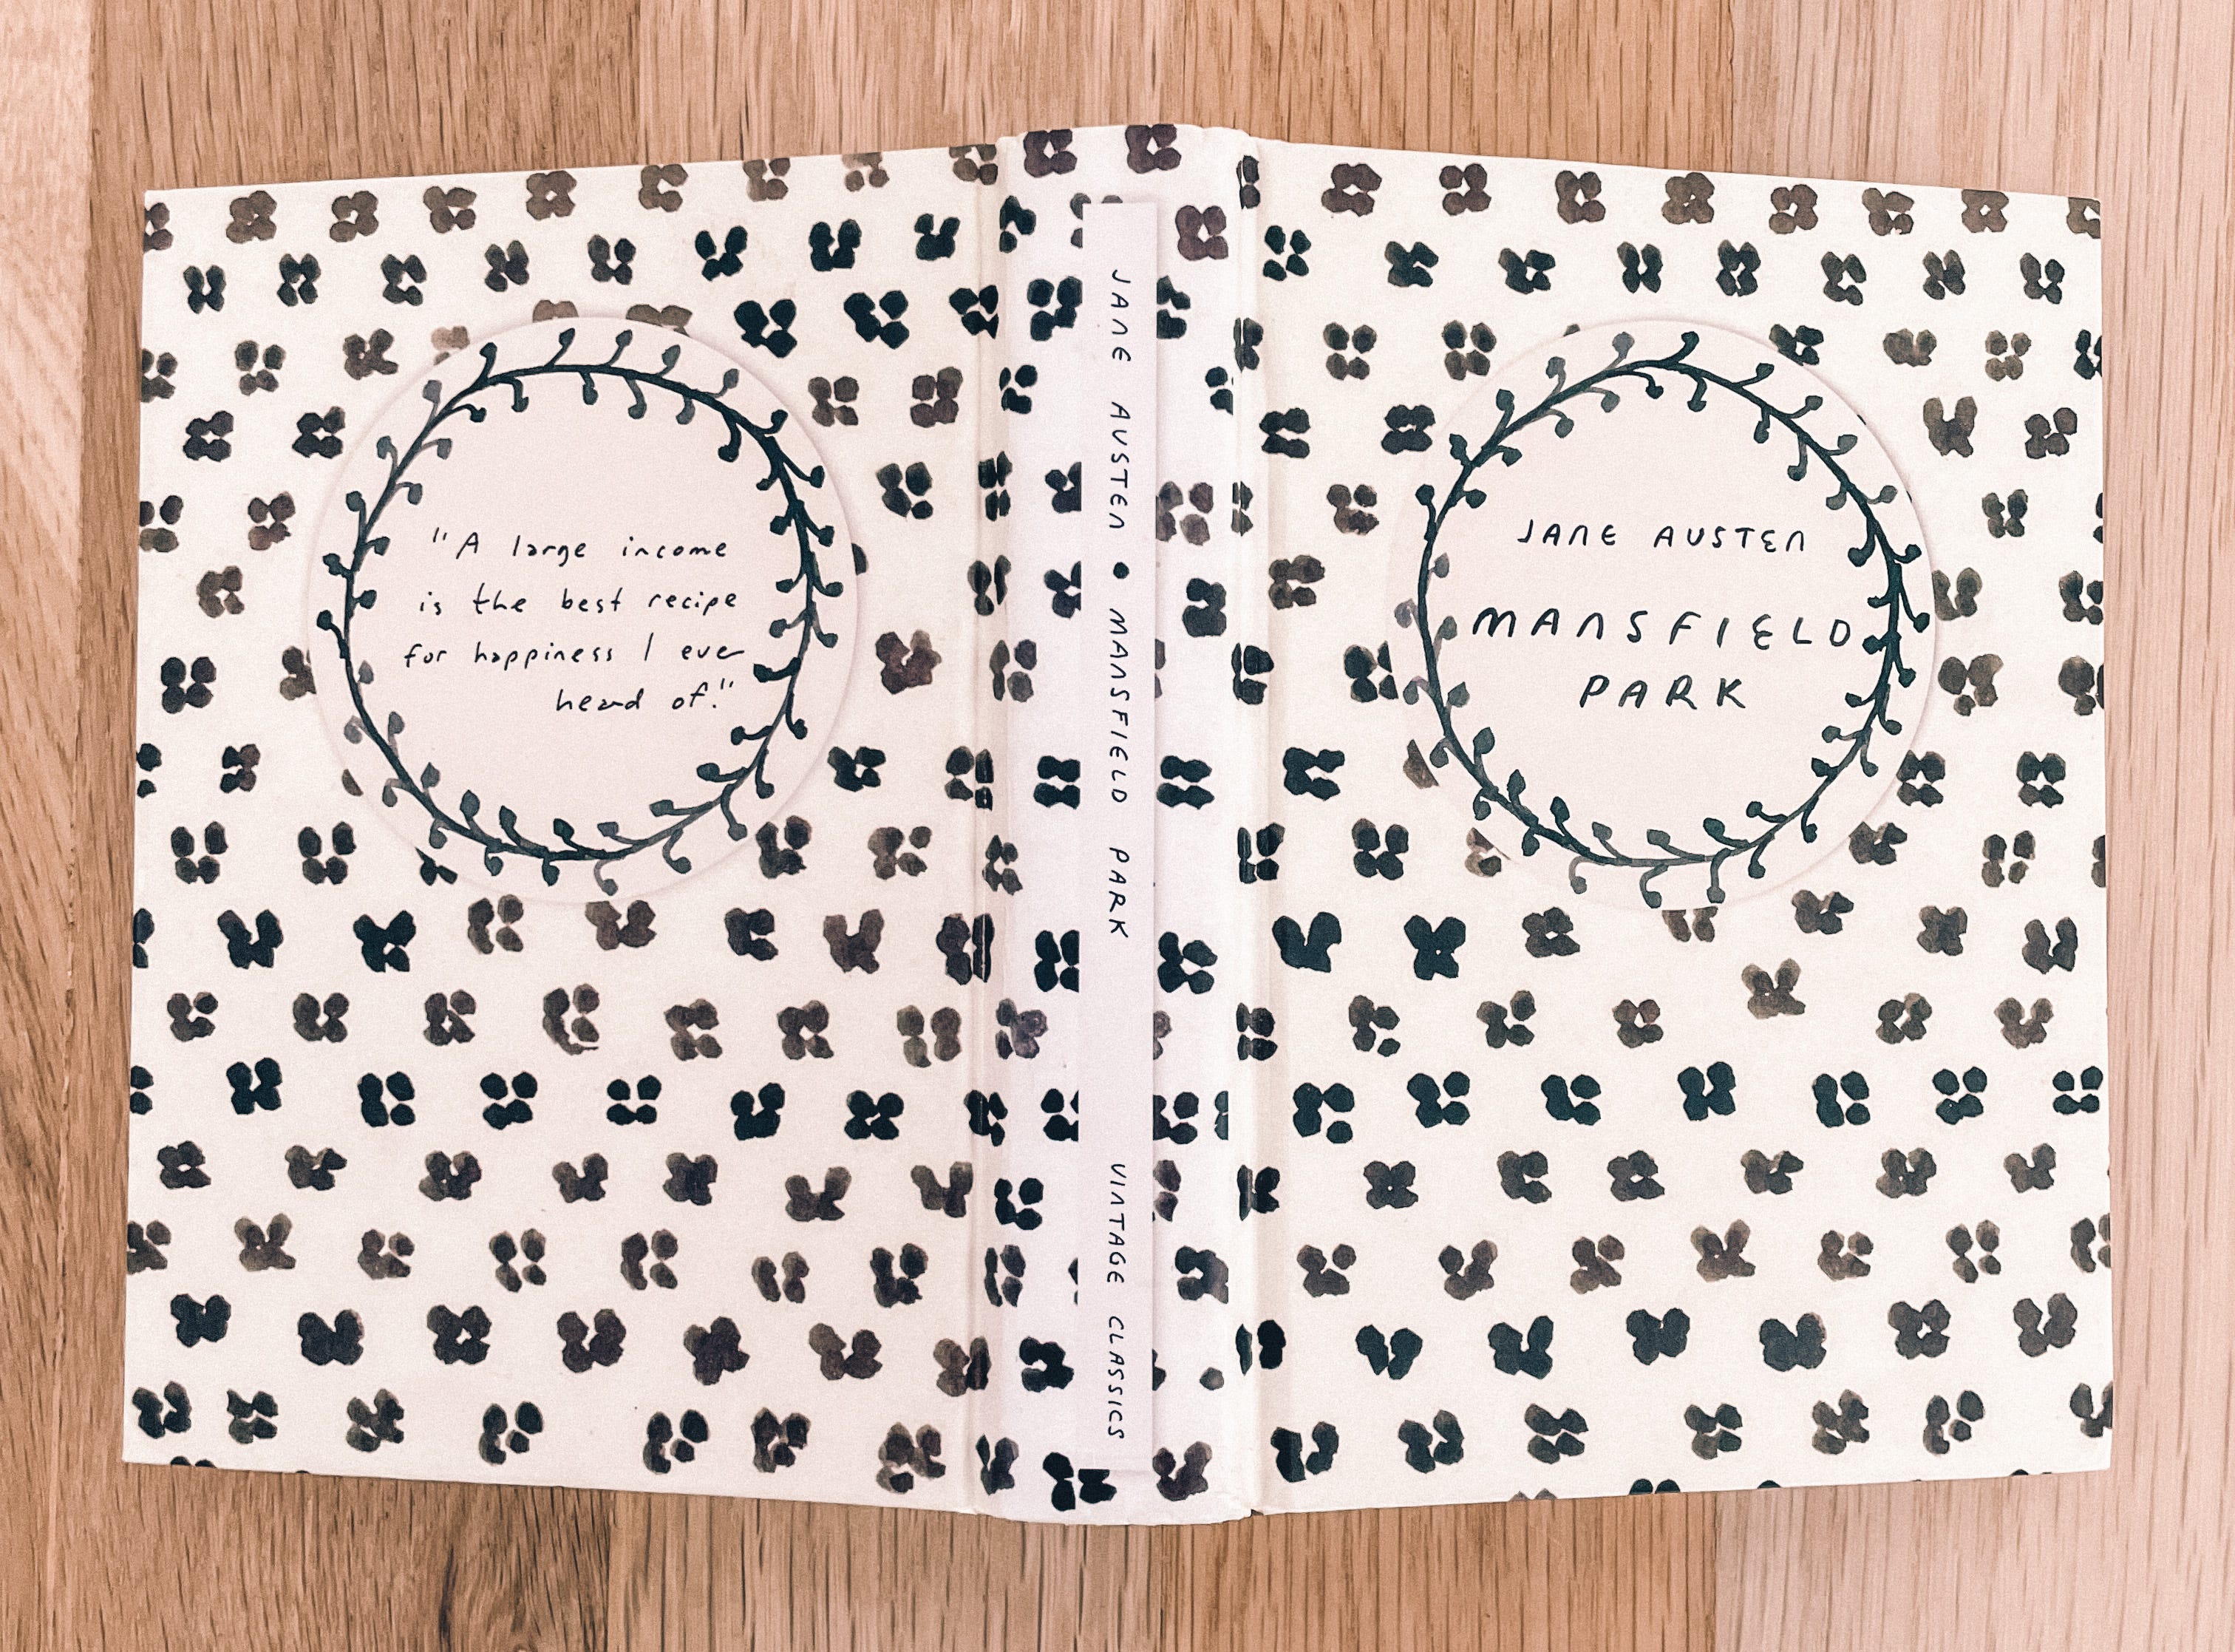 "A large income
is the best recipe
for happiness I ever
heard of."
JANE AUSTEN • MANSFIELD PARK VINTAGE CLASSICS
JANE AUSTEN
MANSFIELD
PARK